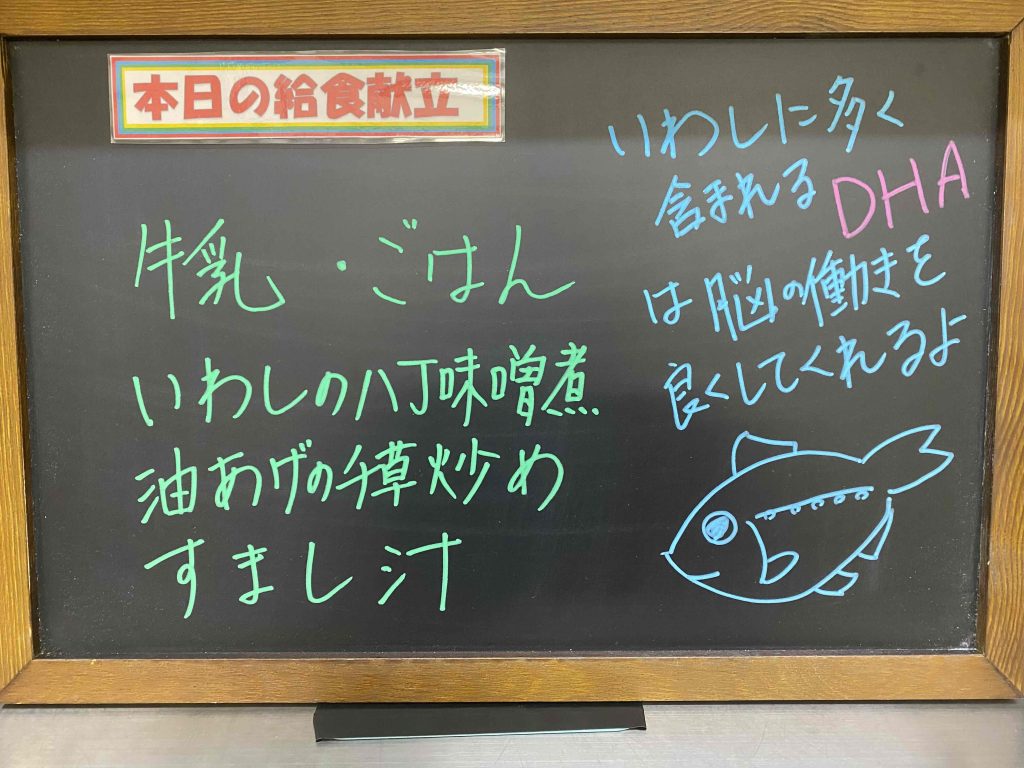 本日の給食献立
牛乳・ごはん
いわしの八丁味噌煮
油あげの千草炒め
すまし汁
いわしに多く
含まれるDHA
は脳の働きを
良くしてくれるよ